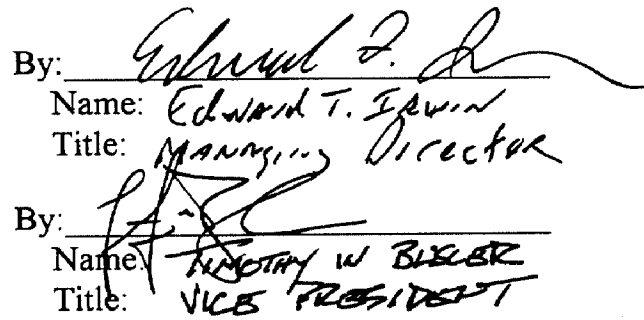 By: Edward T.
Name: Edward T. Irwin
Title: Managing Director
By:
Name: Timothy W
Title: Vice President